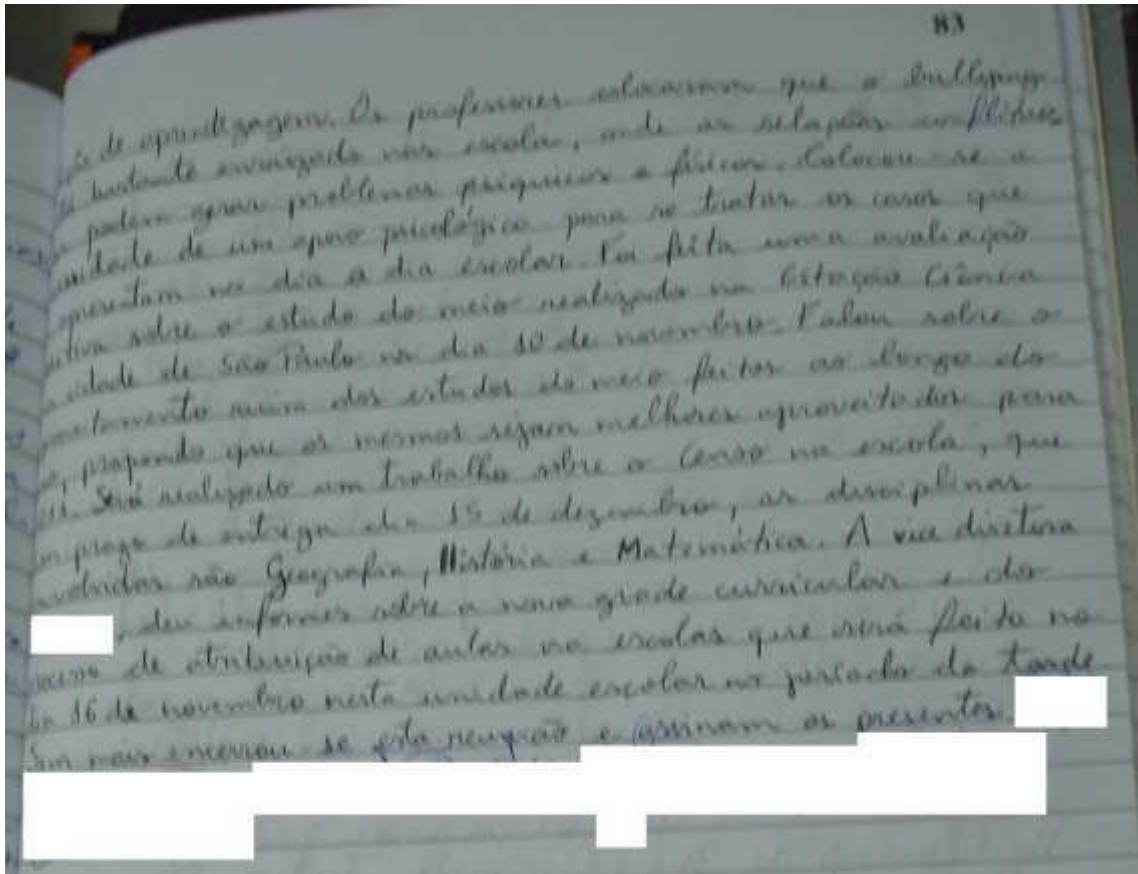 83
de aprendizagem. Os professores colocaram que o bullying
bastante enraizado nas escolas, onde as relações
podem gerar problemas psíquicos e físicos. Colocou-se a
de um apoio psicológico para se tratar os casos que
apresentam no dia a dia escolar. Foi feita uma avaliação
sobre o estudo do meio realizado na Estação Ciência
cidade de São Paulo no dia 10 de novembro. Falou sobre o
dos estudos do meio feitos ao longo do
propondo que os mesmos sejam melhores aproveitados para
Será realizado um trabalho sobre o Censo na escola, que
prazo de entrega dia 15 de dezembro, as disciplinas
são Geografia, História e Matemática. A vice diretora
, deu informes sobre a nova grade curricular e do
de atribuição de aulas na escolas que será feita no
16 de novembro nesta unidade escolar no período da tarde
Sem mais encerrou-se esta reunião e assinam os presentes.